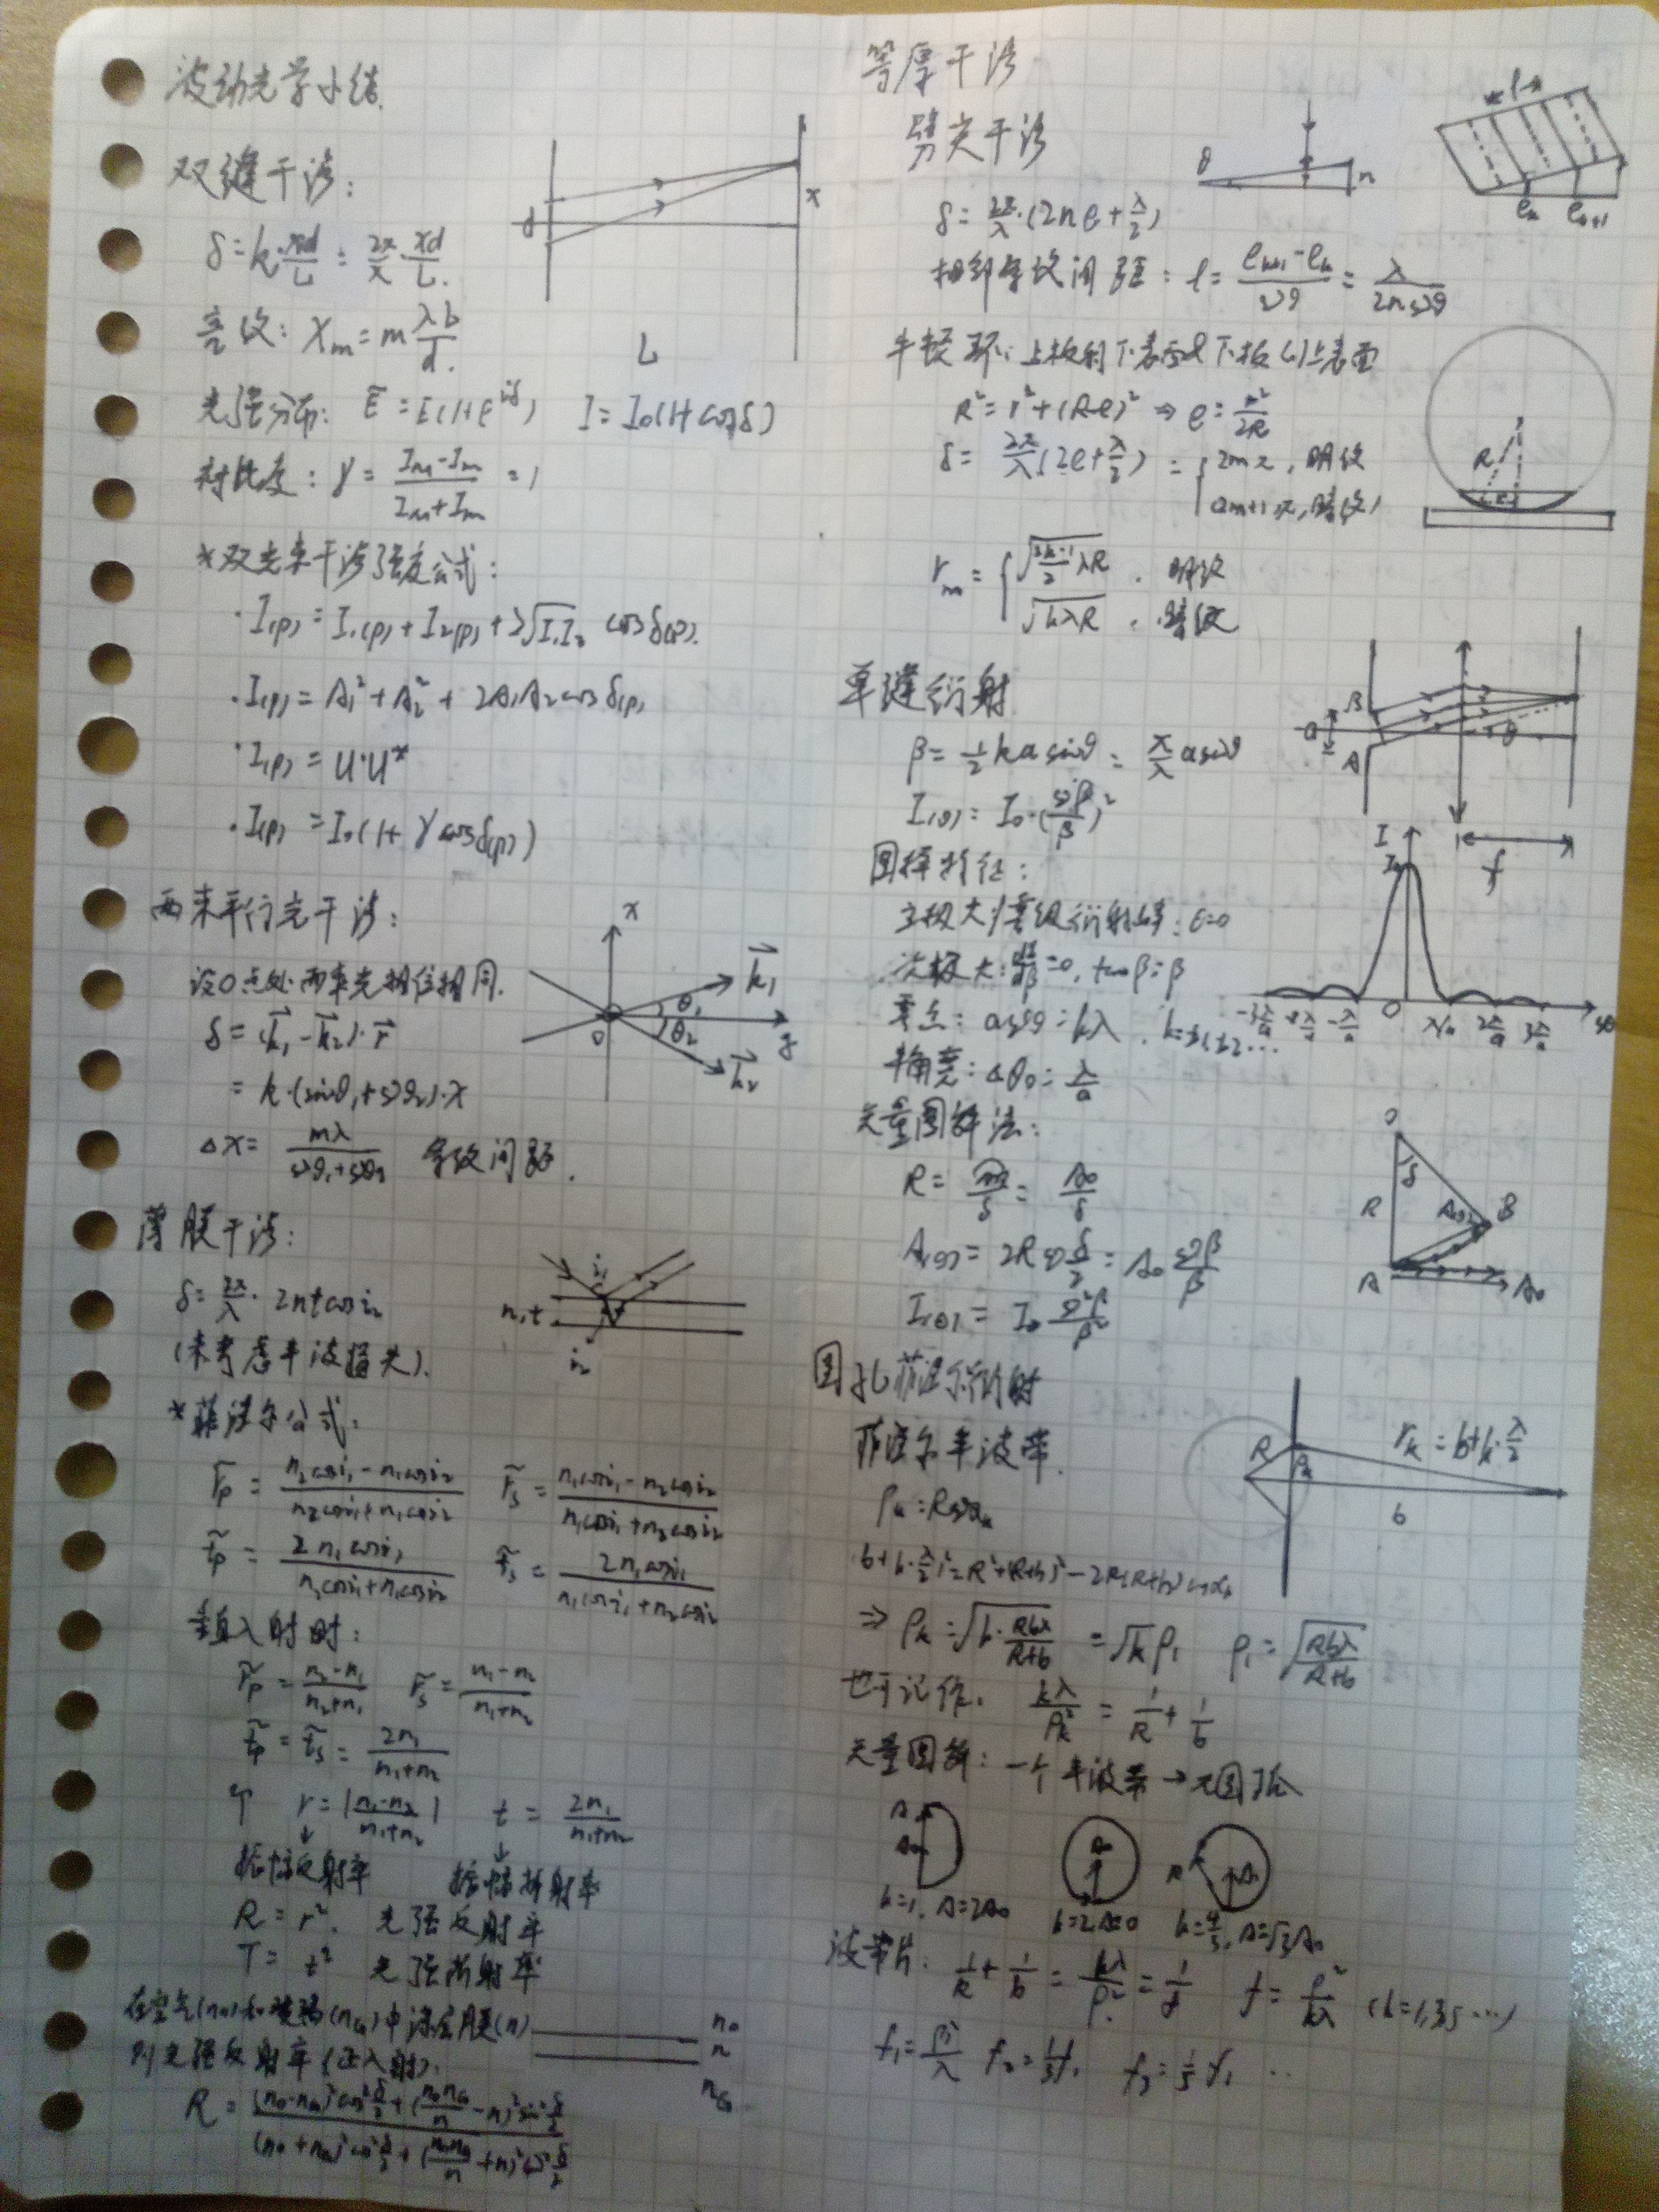 波动光学小结.
双缝干涉:
δ=k·xd/L = 2π/λ·xd/L.
亮纹: Xm = m λL/d.
光强分布: Ẽ = E(1+e^{iδ}) I = I₀(1+cosδ)
对比度: γ = (I_M - I_m)/(I_M + I_m) = 1
*双光束干涉强度公式:
·I(p) = I₁(p) + I₂(p) + 2√(I₁I₂) cosδ(p).
·I(p) = A₁² + A₂² + 2A₁A₂cosδ(p)
·I(p) = U·U*
·I(p) = I₀(1+γcosδ(p))
两束平行光干涉:
设O点处两束光相位相同.
δ = (k₁ - k₂)·r
= k·(sinθ₁+sinθ₂)·x
Δx = mλ/(sinθ₁+sinθ₂) 条纹间距.
薄膜干涉:
δ = 2π/λ · 2nt cos i₂
(未考虑半波损失).
*菲涅尔公式:
r̃p = (n₂cosi₁ - n₁cosi₂)/(n₂cosi₁+n₁cosi₂) r̃s = (n₁cosi₁ - n₂cosi₂)/(n₁cosi₁+n₂cosi₂)
t̃p = 2n₁cosi₁/(n₂cosi₁+n₁cosi₂) t̃s = 2n₁cosi₁/(n₁cosi₁+n₂cosi₂)
垂直入射时:
r̃p = (n₂-n₁)/(n₂+n₁) r̃s = (n₁-n₂)/(n₁+n₂)
t̃p = t̃s = 2n₁/(n₁+n₂)
r = |(n₁-n₂)/(n₁+n₂)| t = 2n₁/(n₁+n₂)
振幅反射率 振幅折射率
R = r². 光强反射率
T = t² 光强折射率
在空气(n₀)和玻璃(nG)中涂层膜(n)
则光强反射率(正入射).
R = ((n₀-nG)²cos²δ/2 + (n₀nG/n - n)²sin²δ/2)/((n₀+nG)²cos²δ/2 + (n₀nG/n + n)²sin²δ/2)
d
x
L
x
k₁
θ₁
O
θ₂
z
k₂
i₁
n,t
i₂
n₀
n
nG
等厚干涉
劈尖干涉
δ = 2π/λ·(2ne+λ/2)
相邻条纹间距: l = (e_{k+1}-e_k)/sinθ = λ/(2n sinθ)
牛顿环: 上板的下表面及下板的上表面
R² = r²+(R-e)² ⇒ e = r²/2R
δ = 2π/λ(2e+λ/2) = { 2mπ, 明纹
(2m+1)π, 暗纹)
r_m = { √((2k-1)/2 λR) . 明纹
√(kλR) . 暗纹
单缝衍射
β = 1/2 ka sinθ = π/λ a sinθ
I(θ) = I₀·(sinβ/β)²
图样特征:
主极大/零级衍射峰: θ=0
次极大: dI/dβ=0, tanβ=β
零点: a sinθ = kλ, k=±1,±2...
半角宽: Δθ₀ = λ/a
矢量图解法:
R = AB/δ = A₀/δ
A(θ) = 2R sin δ/2 = A₀ sinβ/β
I(θ) = I₀ sin²β/β²
圆孔菲涅尔衍射
菲涅尔半波带.
ρk = R sinαk
(b+k·λ/2)² = R²+(R+b)²-2R(R+b)cosαk
⇒ ρk = √(k·Rbλ/(R+b)) = √k ρ₁ ρ₁ = √(Rbλ/(R+b))
也可记作. kλ/ρk² = 1/R + 1/b
矢量图解: 一个半波带→半圆弧
k=1, A=2A₀ k=2, A=0 k=4/3, A=√3A₀
波带片. 1/R + 1/b = kλ/ρ² = 1/f f = ρ²/kλ (k=1,3,5…)
f₁ = ρ²/λ f₂ = 1/3f₁ f₃ = 1/5 f₁ ..
θ
n
l
e_k e_{k+1}
R
r
B
a
A
θ
f
I
I₀
-3λ/a -2λ/a -λ/a O λ/a 2λ/a 3λ/a sinθ
O
δ
R
A(θ)
B
A
A₀
R
ρk
rk = b+k·λ/2
b